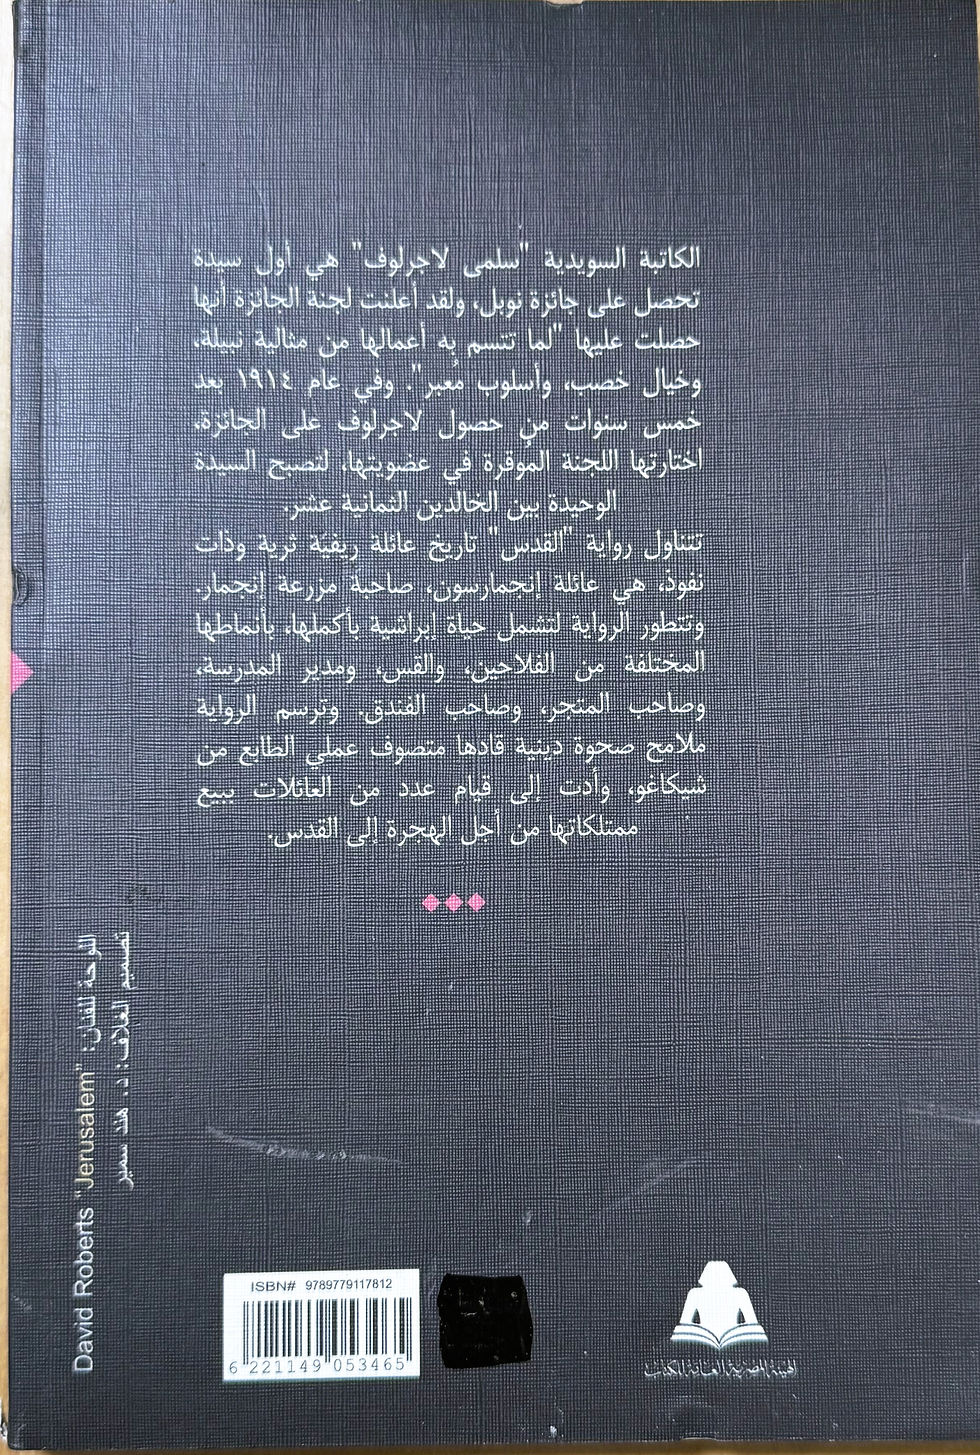 الكاتبة السويدية "سلمى لاجرلوف" هي أول سيدة
تحصل على جائزة نوبل، ولقد أعلنت لجنة الجائزة أنها
حصلت عليها "لما تتسم به أعمالها من مثالية نبيلة،
وخيال خصب، وأسلوب مُعبر". وفي عام ١٩١٤ بعد
خمس سنوات من حصول لاجرلوف على الجائزة،
اختارتها اللجنة الموقرة في عضويتها، لتصبح السيدة
الوحيدة بين الخالدين الثمانية عشر.
تتناول رواية "القدس" تاريخ عائلة ريفيّة ثرية وذات
نفوذ، هي عائلة إنجمارسون، صاحبة مزرعة إنجمار.
وتتطور الرواية لتشمل حياة إبراشية بأكملها، بأنماطها
المختلفة من الفلاحين، والقس، ومدير المدرسة،
وصاحب المتجر، وصاحب الفندق. وترسم الرواية
ملامح صحوة دينية قادها متصوف عملي الطابع من
شيكاغو، وأدت إلى قيام عدد من العائلات ببيع
ممتلكاتها من أجل الهجرة إلى القدس.
اللوحة للفنان: David Roberts "Jerusalem"
تصميم الغلاف: د. هند سمير
ISBN# 9789779117812
6 221149 053465
الهيئة المصرية العامة للكتاب